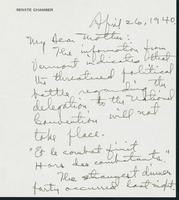 SENATE CHAMBER
April 26, 1940
My Dear Mother:
The information from
Vermont indicates that
the threatened political
battle, regarding the
delegation to the National
Convention will not
take place.
"Et le combat finit
Hors des combattants."
The strangest dinner
party occurred last night.